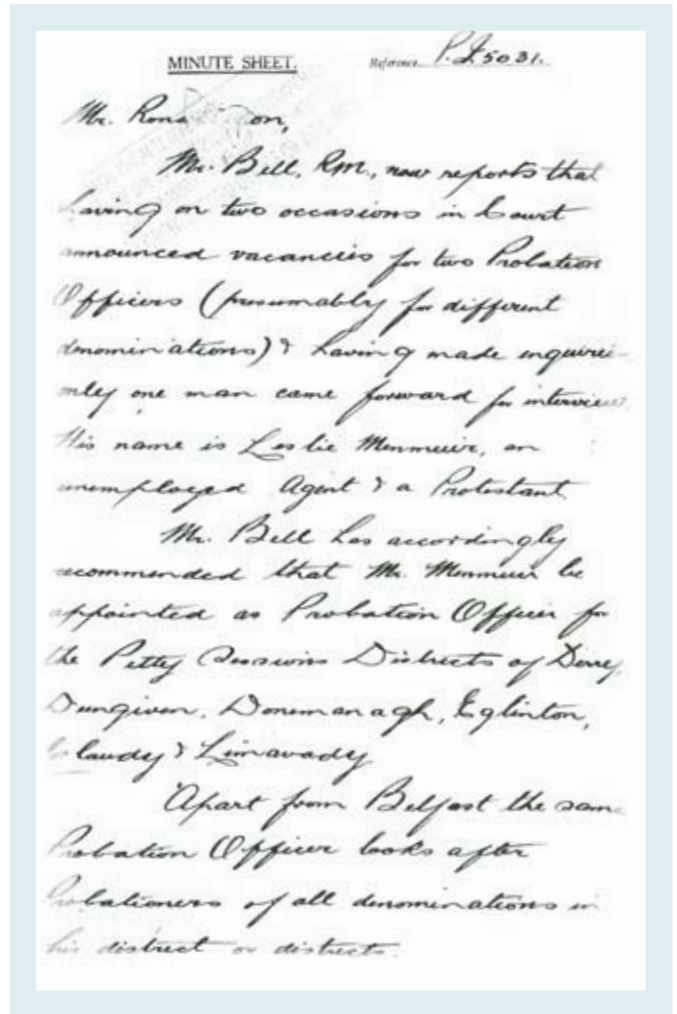 MINUTE SHEET. Reference P.J 5031.
Mr.
Mr. Bell, R.M., now reports that
having on two occasions in Court
announced vacancies for two Probation
Officers (presumably for different
denominations) & having made inquiries
only one man came forward for interview
His name is Leslie Menmuir, an
unemployed Agent & a Protestant
Mr. Bell has accordingly
recommended that Mr. Menmuir be
appointed as Probation Officer for
the Petty Sessions Districts of Derry,
Dungiven, Donemanagh, Eglinton,
Claudy & Limavady
Apart from Belfast the same
Probation Officer looks after
Probationers of all denominations in
his district or districts.